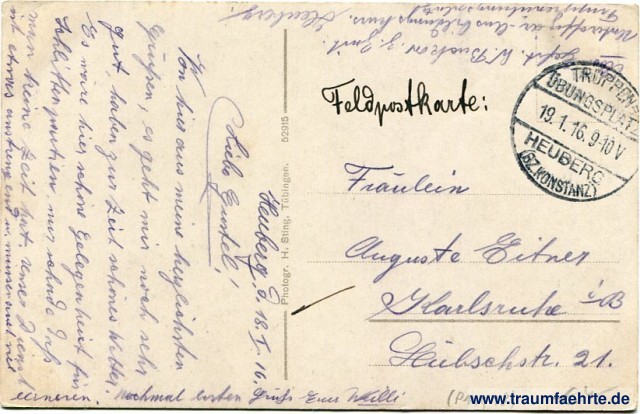 Feldpostkarte:
TRUPPEN-
ÜBUNGSPLATZ
19.1.16. 9-10 V
HEUBERG
(BZ. KONSTANZ)
Fräulein
Auguste Eitner
Karlsruhe i/B
Hübschstr. 21.
Photogr. H. Sting, Tübingen.
52915
Heuberg, d. 18. I. 16.
Liebe Gustel!
Von hier aus meine herzlichsten
Grüßen, es geht mir noch sehr
gut, haben gut Zeit schönes Wetter,
Es wäre hier schöne Gelegenheit für
Schlittenpartien nur schade daß
man keine Zeit hat. unser Dienst
ist etwas anstrengend u. müssen
nochmal besten Gruß Euer Willi
Heuberg.
www.traumfaehrte.de